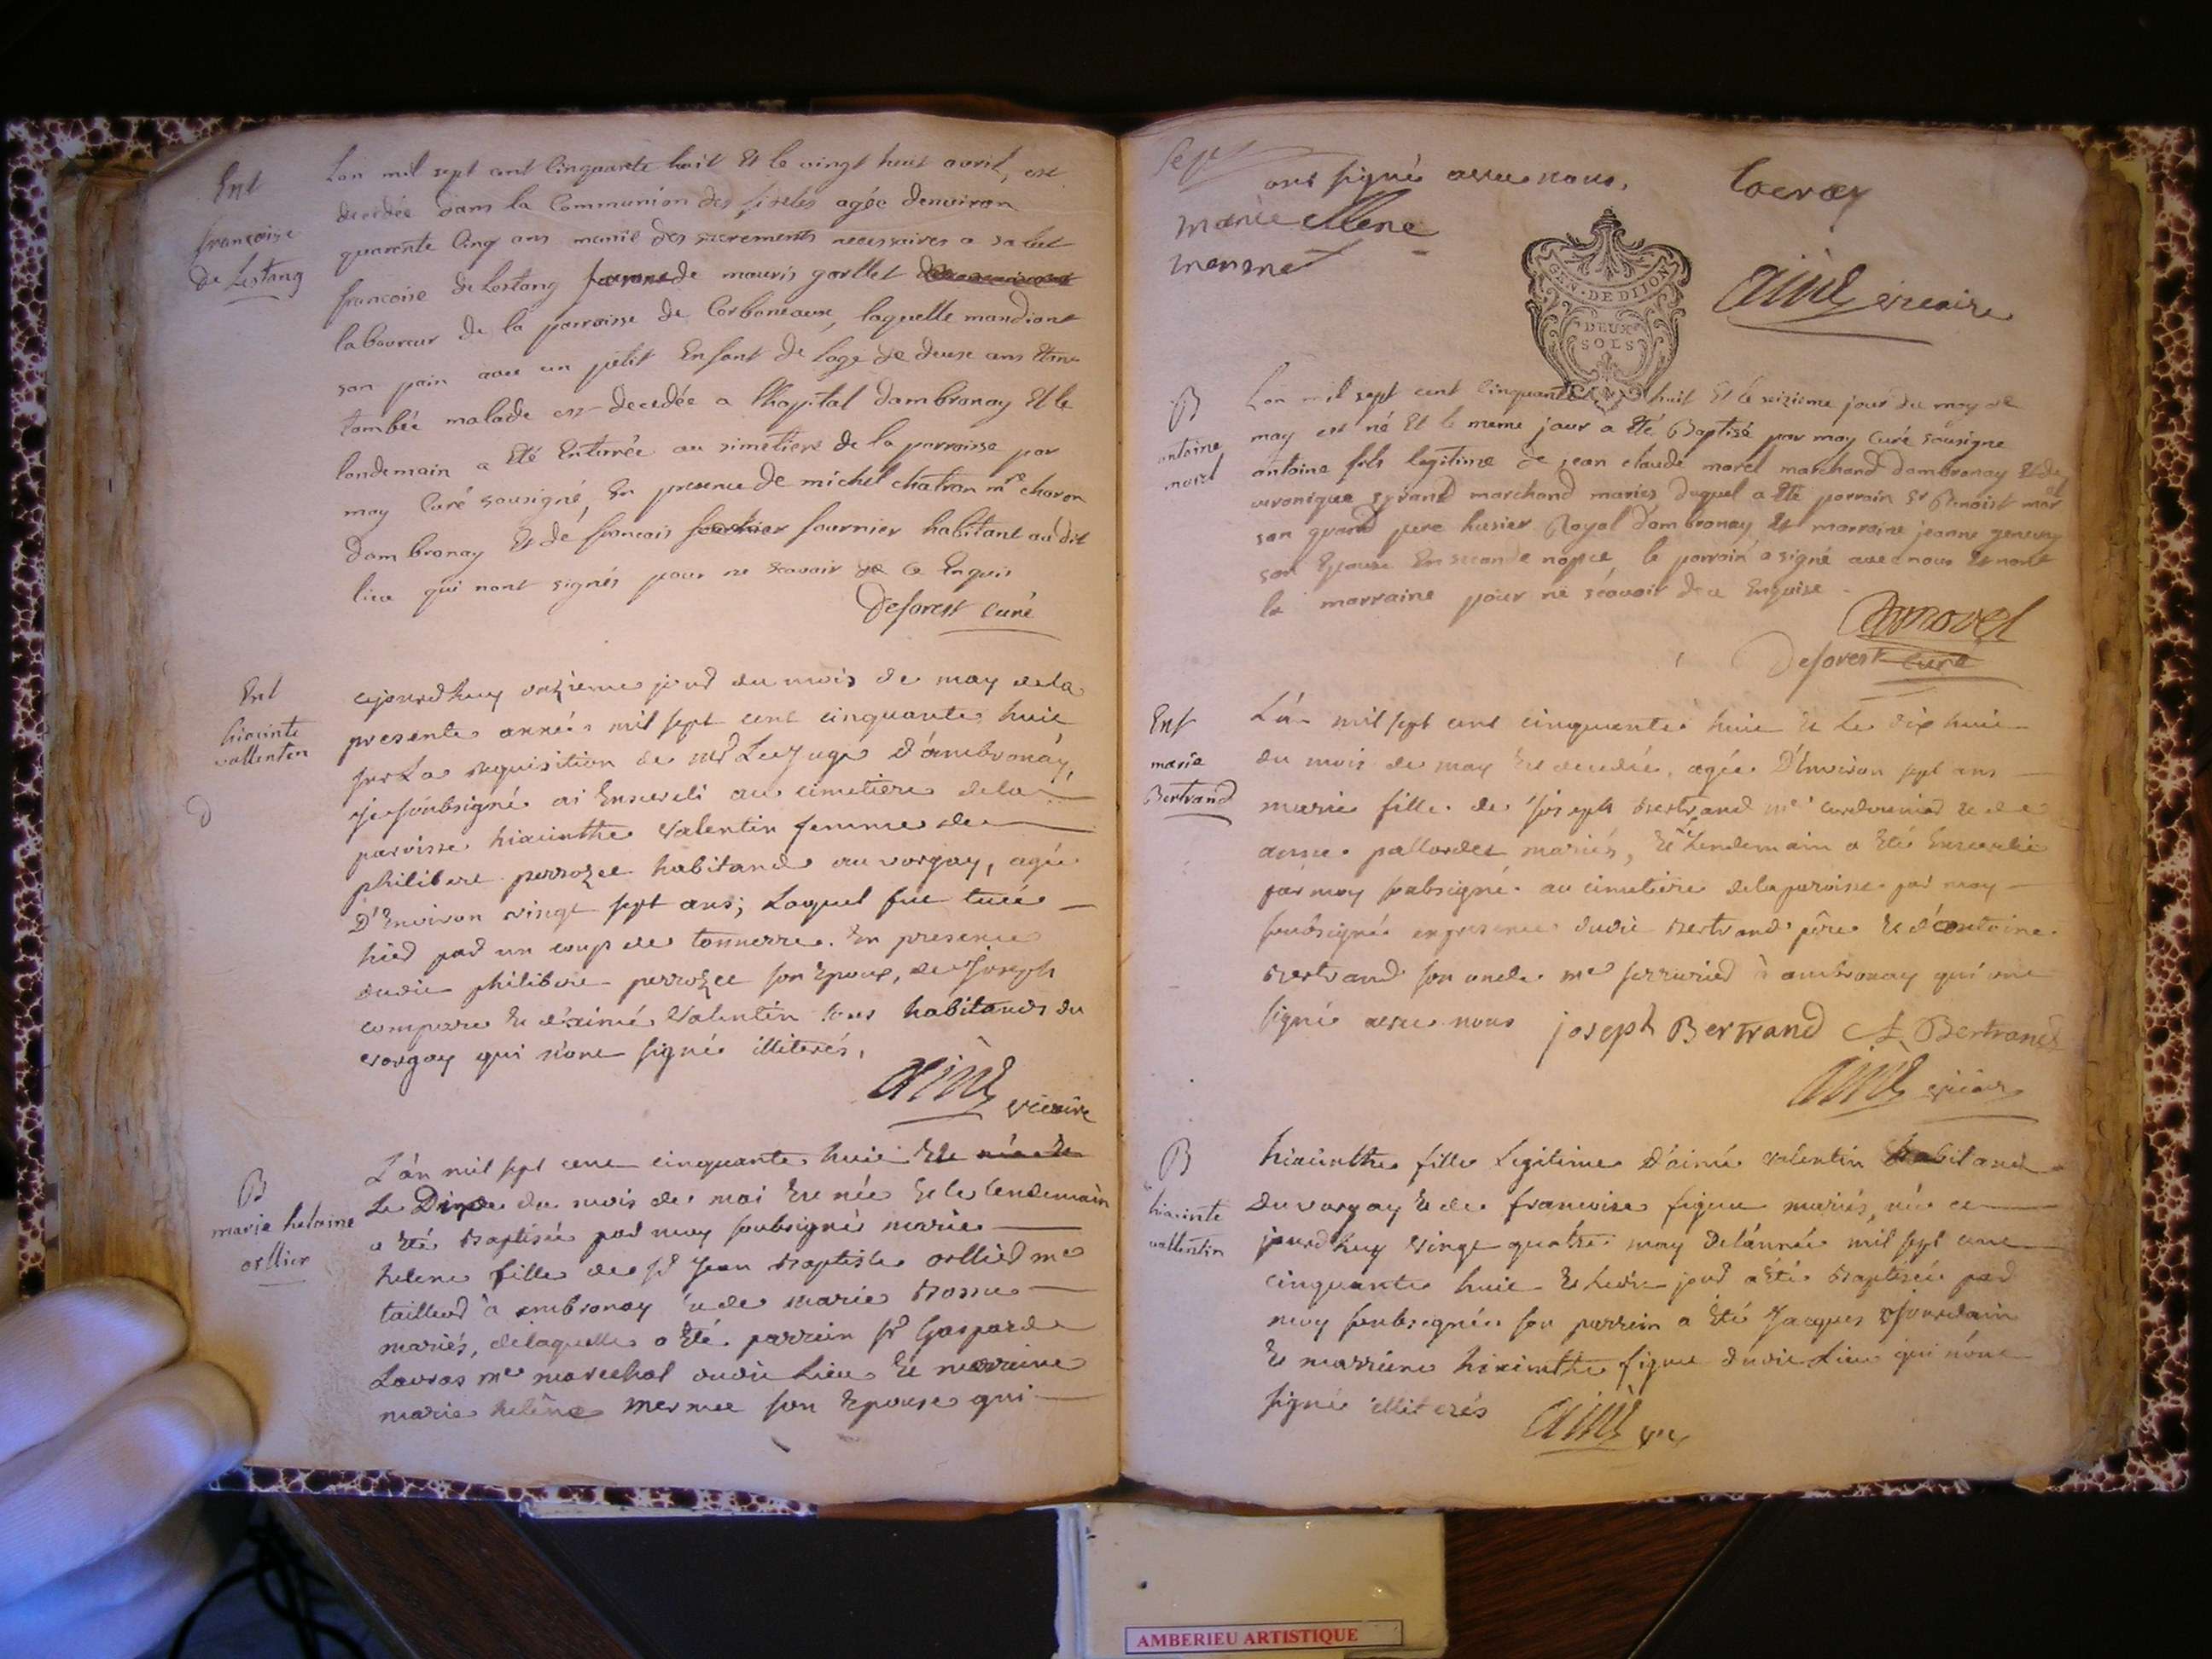 Ent
francoise
de Lestang
Lan mil sept cent cinquante huit Et le vingt huit avril, est
decedée dans la Communion des fideles agée denviron
quarente cinq ans munie des sacrements necessaires a salut
francoise de Lestang femme de mauris
laboureur de la parroisse de Corbonaux, laquelle mandiant
son pain avec un petit Enfant de lage de deux ans Etant
tombée malade est decedée a lhopital dambronay Et le
landemain a Eté Enterrée au simetiere de la parroisse par
moy Curé sousigné, En presence de michel chatron me charon
dambronay Et de francois fournier habitant audit
lieu qui nont signés pour ne scavoir de ce Enquis
Deforest curé
Ent
hiacinte
vallentin
cejourdhuy onzieme jour du mois de may de la
presente année mil sept cent cinquante huit
sur La requisition de mr Le Juge d'ambronay,
Je soubsigné ai Enseveli au cimetiere de la
paroisse hiacinthe valentin femme de
philibert perrozet habitand au vorgay, agée
D'Environ vingt sept ans; Laquel fut tuée
hier par un coup de tonnerre. En presence
dudit philibert perrozet son Epoux, de Joseph
compare Et d'aimé Valentin tous habitands du
vorgay qui n'ont signé illiterés,
aimé vicaire
B
marie helaine
orllier
L'an mil sept cent cinquante huit Et
Le Dix du mois de mai Est née Et le lendemain
a Eté Baptisée par moy soubsigné marie
helene fille de sr Jean Baptiste orllier me
tailleur à ambronay Et de marie
mariés, de laquelle a Eté parrain sr Gaspard
Lavras me marechal dudit Lieu Et marraine
marie helene mermet son Epouse qui
ont signé avec nous,
marie ellene
mermet
aimé vicaire
GEN. DE DIJON
DEUX
SOLS
B
antoine
morel
Lan mil sept cent cinquante huit Et le seizieme jour du moy de
may est né Et le meme jour a Eté Baptisé par moy Curé sousigné
antoine fils legitime de jean claude morel marchand dambronay Et de
veronique marchand mariés duquel a Eté parrain sr Benoist morel
son grand pere husier Royal dambronay Et marraine jeanne
son Epouse En seconde nopce, le parrain a signé avec nous Et nont
la marraine pour ne scavoir de ce Enquise.
morel
Deforest curé
Ent
marie
Bertrand
L'an mil sept cent cinquante huit Et Le dix huit
du mois de may Est decedée, agée D'Environ sept ans
marie fille de Joseph Bertrand me cordonnier Et de
anne pallordet mariés, Et Lendemain a Eté Ensevelie
par moy soubsigné au cimetiere de la paroisse par moy
soubsigné en presence dudit Bertrand père Et d'antoine
Bertrand son oncle me serrurier à ambronay qui ont
signé avec nous joseph Bertrand A Bertrand
aimé vicaire
B
hiacinte
vallentin
hiacinthe fille Legitime D'aimé valentin habitand
du vorgay Et de francoise figuet mariés, née ce
jourdhuy vingt quatre may De l'année mil sept cent
cinquante huit Et Ledit jour a Eté Baptisée par
moy soubsigné son parrein a Eté Jacques Jourdain
Et marraine hiacinthe figuet dudit Lieu qui n'ont
signé illiterés aimé vic
AMBERIEU ARTISTIQUE